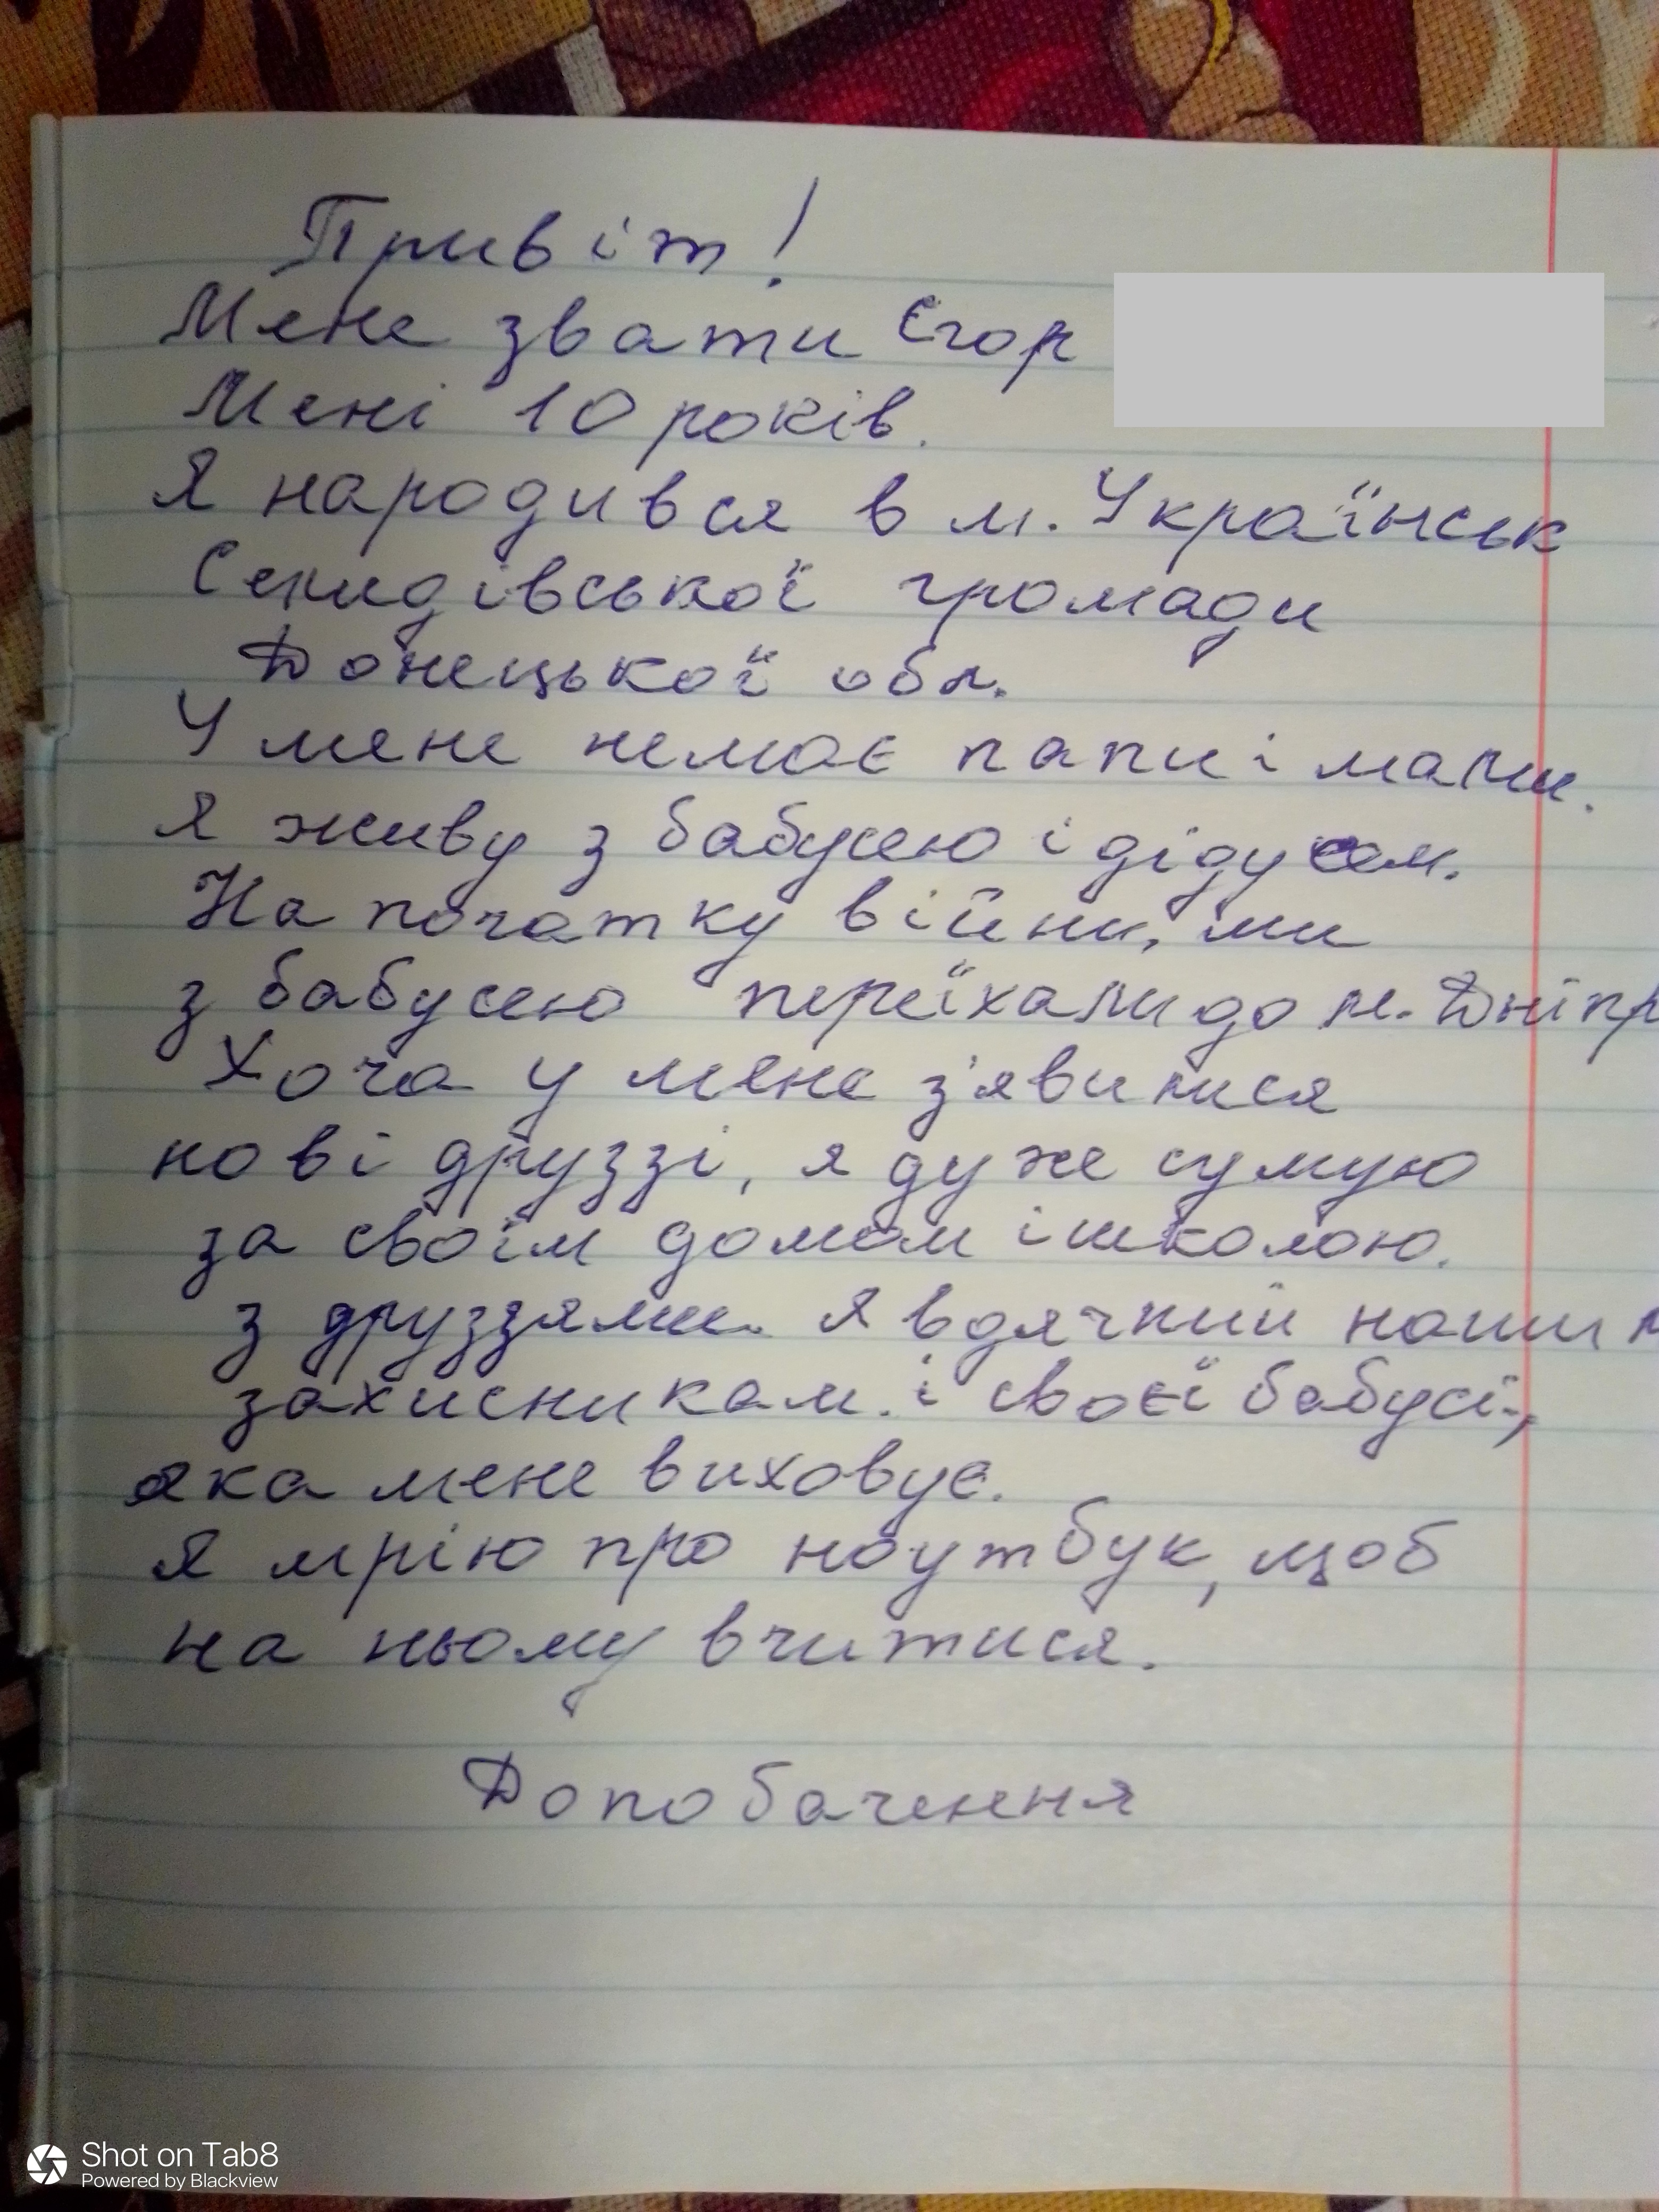 Привіт!
Мене звати Єгор
Мені 10 років.
Я народився в м. Українськ
Селидівської громади
Донецької обл.
У мене немає папи і мами.
Я живу з бабусею і дідусем.
На початку війни, ми
з бабусею переїхали до м. Дніпр
Хоча у мене з'явилися
нові друззі, я дуже сумую
за своїм домом і школою.
з друззями. Я вдячний нашим
захисникам. і своєї бабусі,
яка мене виховує.
Я мрію про ноутбук, щоб
на ньому вчитися.
Допобачення
Shot on Tab8
Powered by Blackview